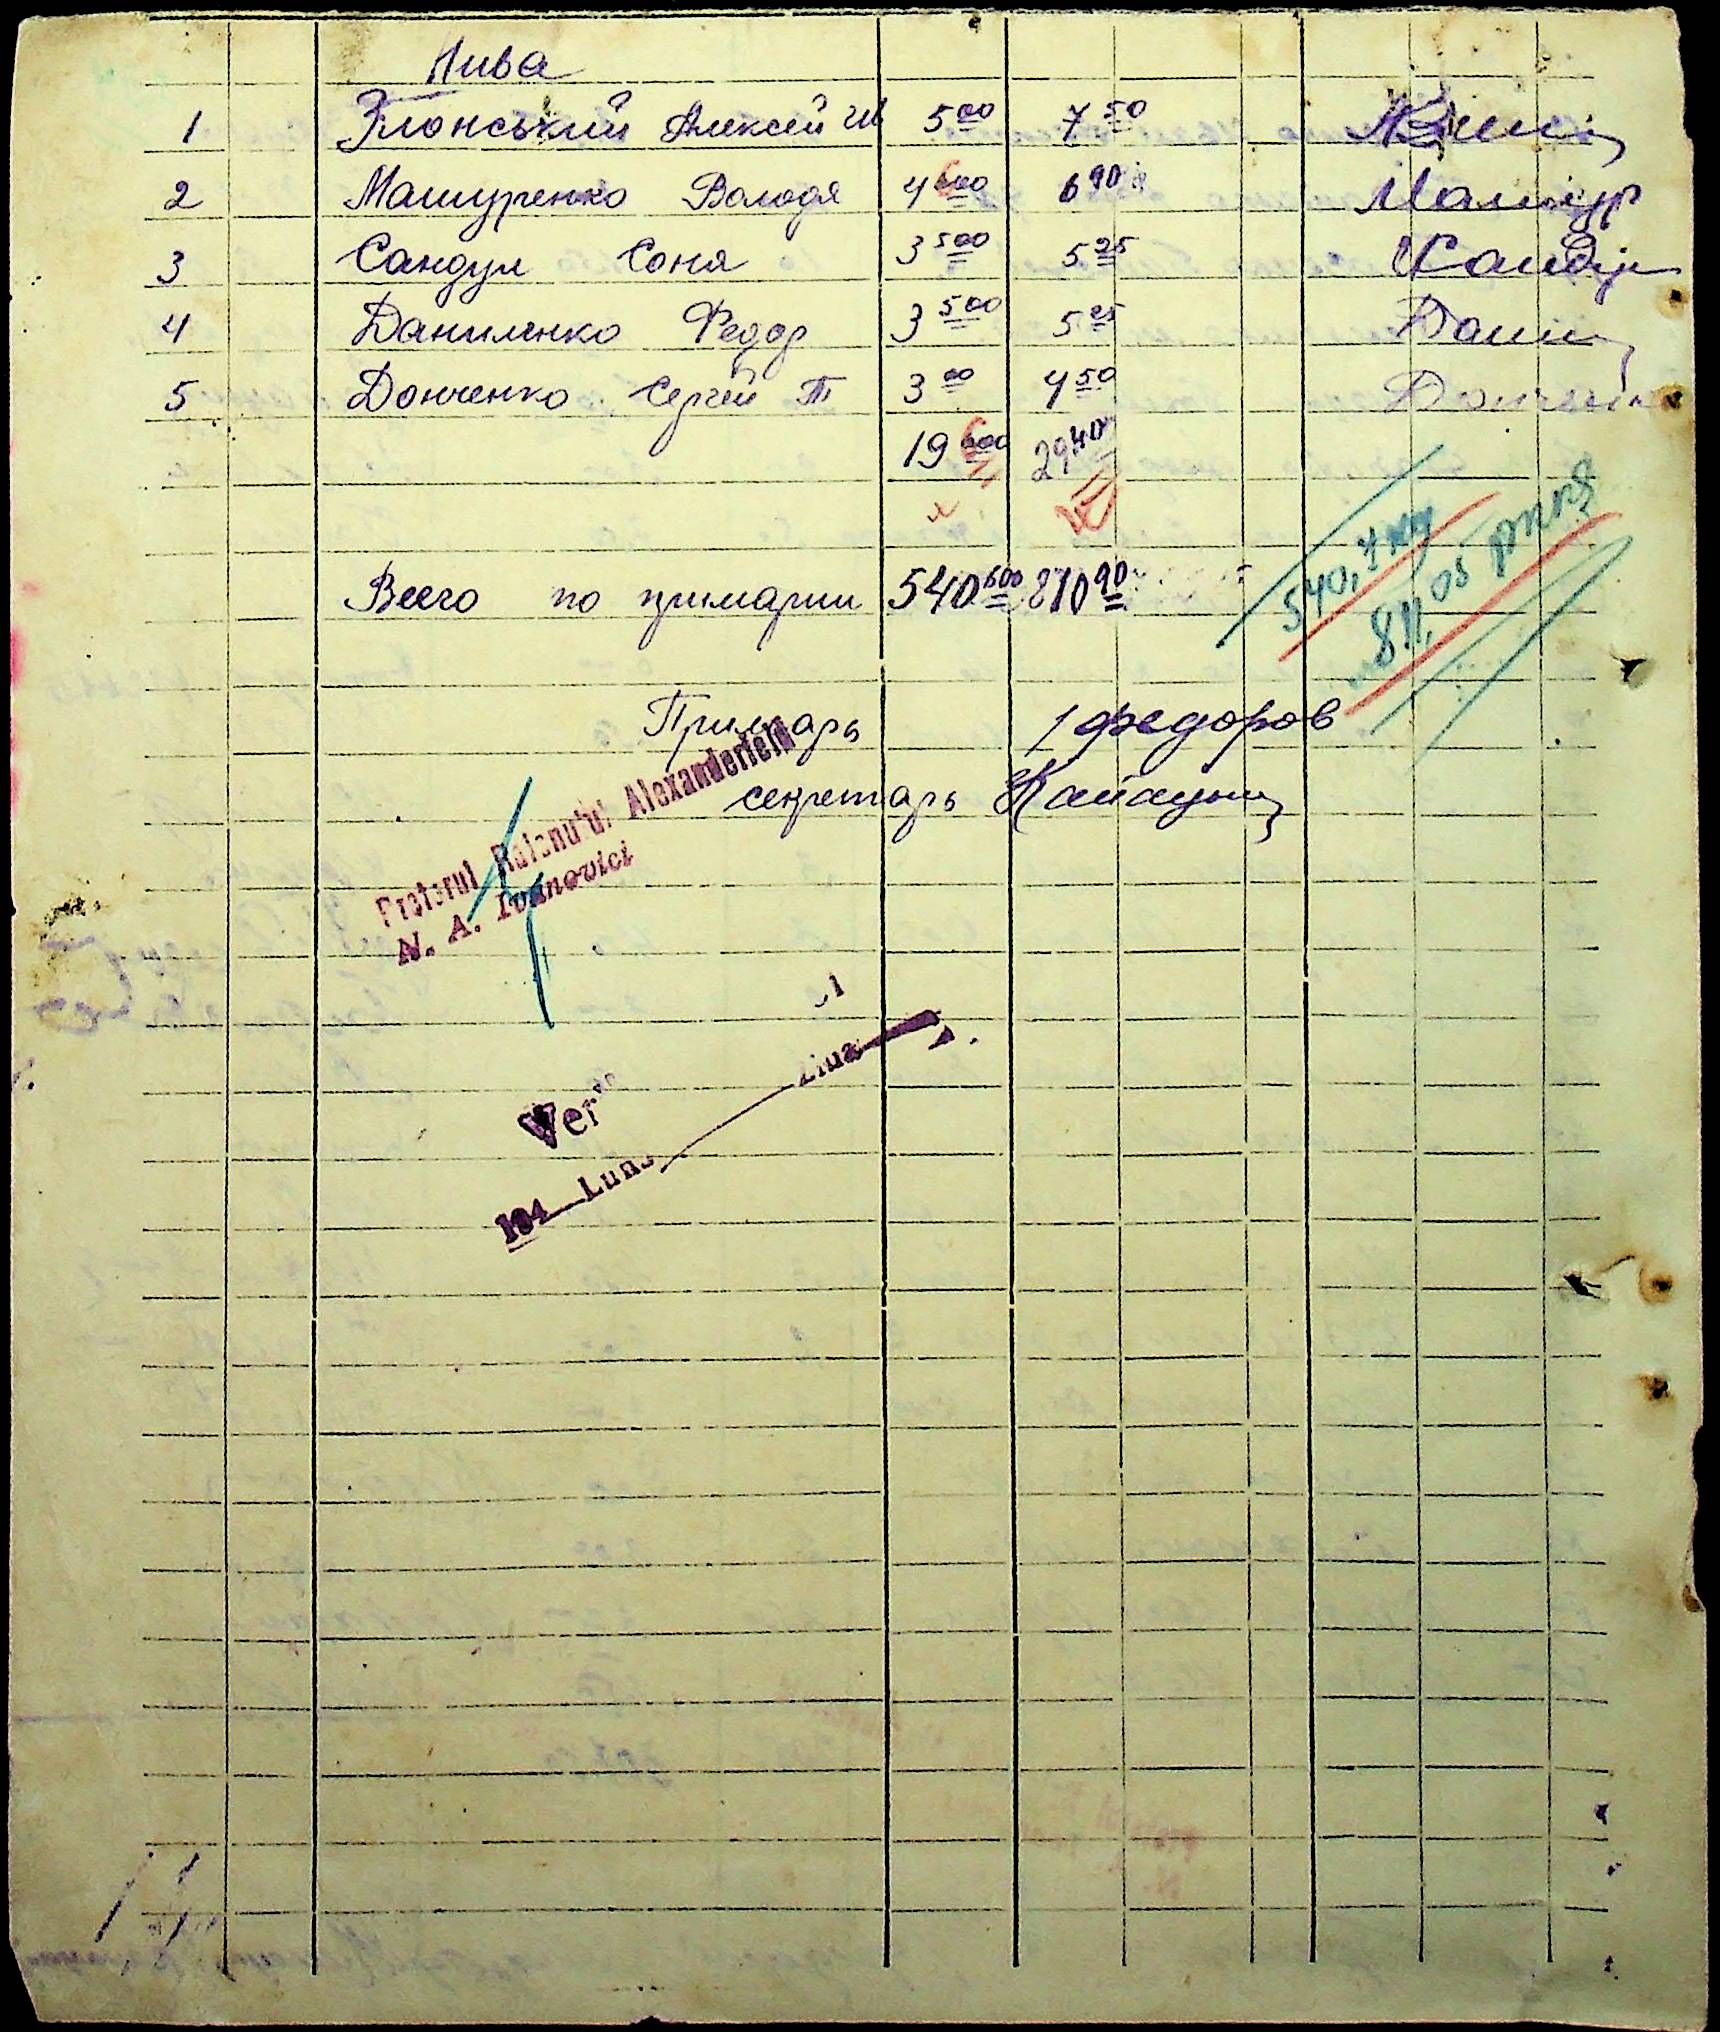 Нива
1 Злонський Алексей Ив 5 00 7 50
2 Машуренко Володя 4 600 6 90 Машур
3 Сандул Соня 3 500 5 25 Сандул
4 Даниленко Федор 3 500 5 25 Дани
5 Донченко Сергей Т 3 00 4 50 Донченк
19 600 29 40
540,7 кг
811,05 рккя
Всего по примарии 540 600 810 90
Примарь / Федоров
секретарь
Pretorul Raionului Alexanderfeld
N. A. Ivanovici
Ver
194 Luna Ziua